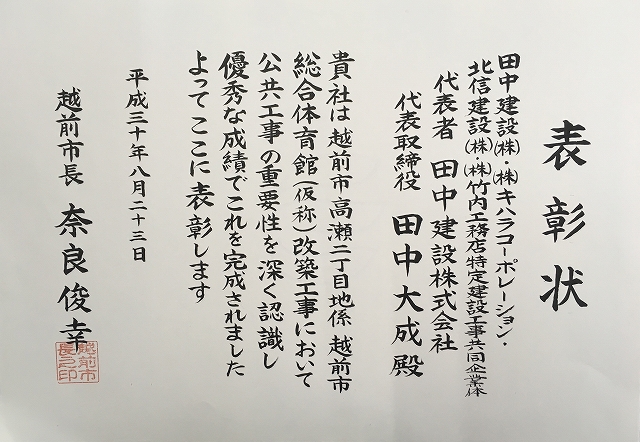 表彰状
田中建設(株)・(株)キハラコーポレーション・
北信建設(株)・(株)竹内工務店特定建設工事共同企業体
代表者 田中建設株式会社
代表取締役 田中大成 殿
貴社は越前市高瀬二丁目地係 越前市
総合体育館(仮称)改築工事において
公共工事の重要性を深く認識し
優秀な成績でこれを完成されました
よってここに表彰します
平成三十年八月二十三日
越前市長 奈良俊幸
越前市
長之印